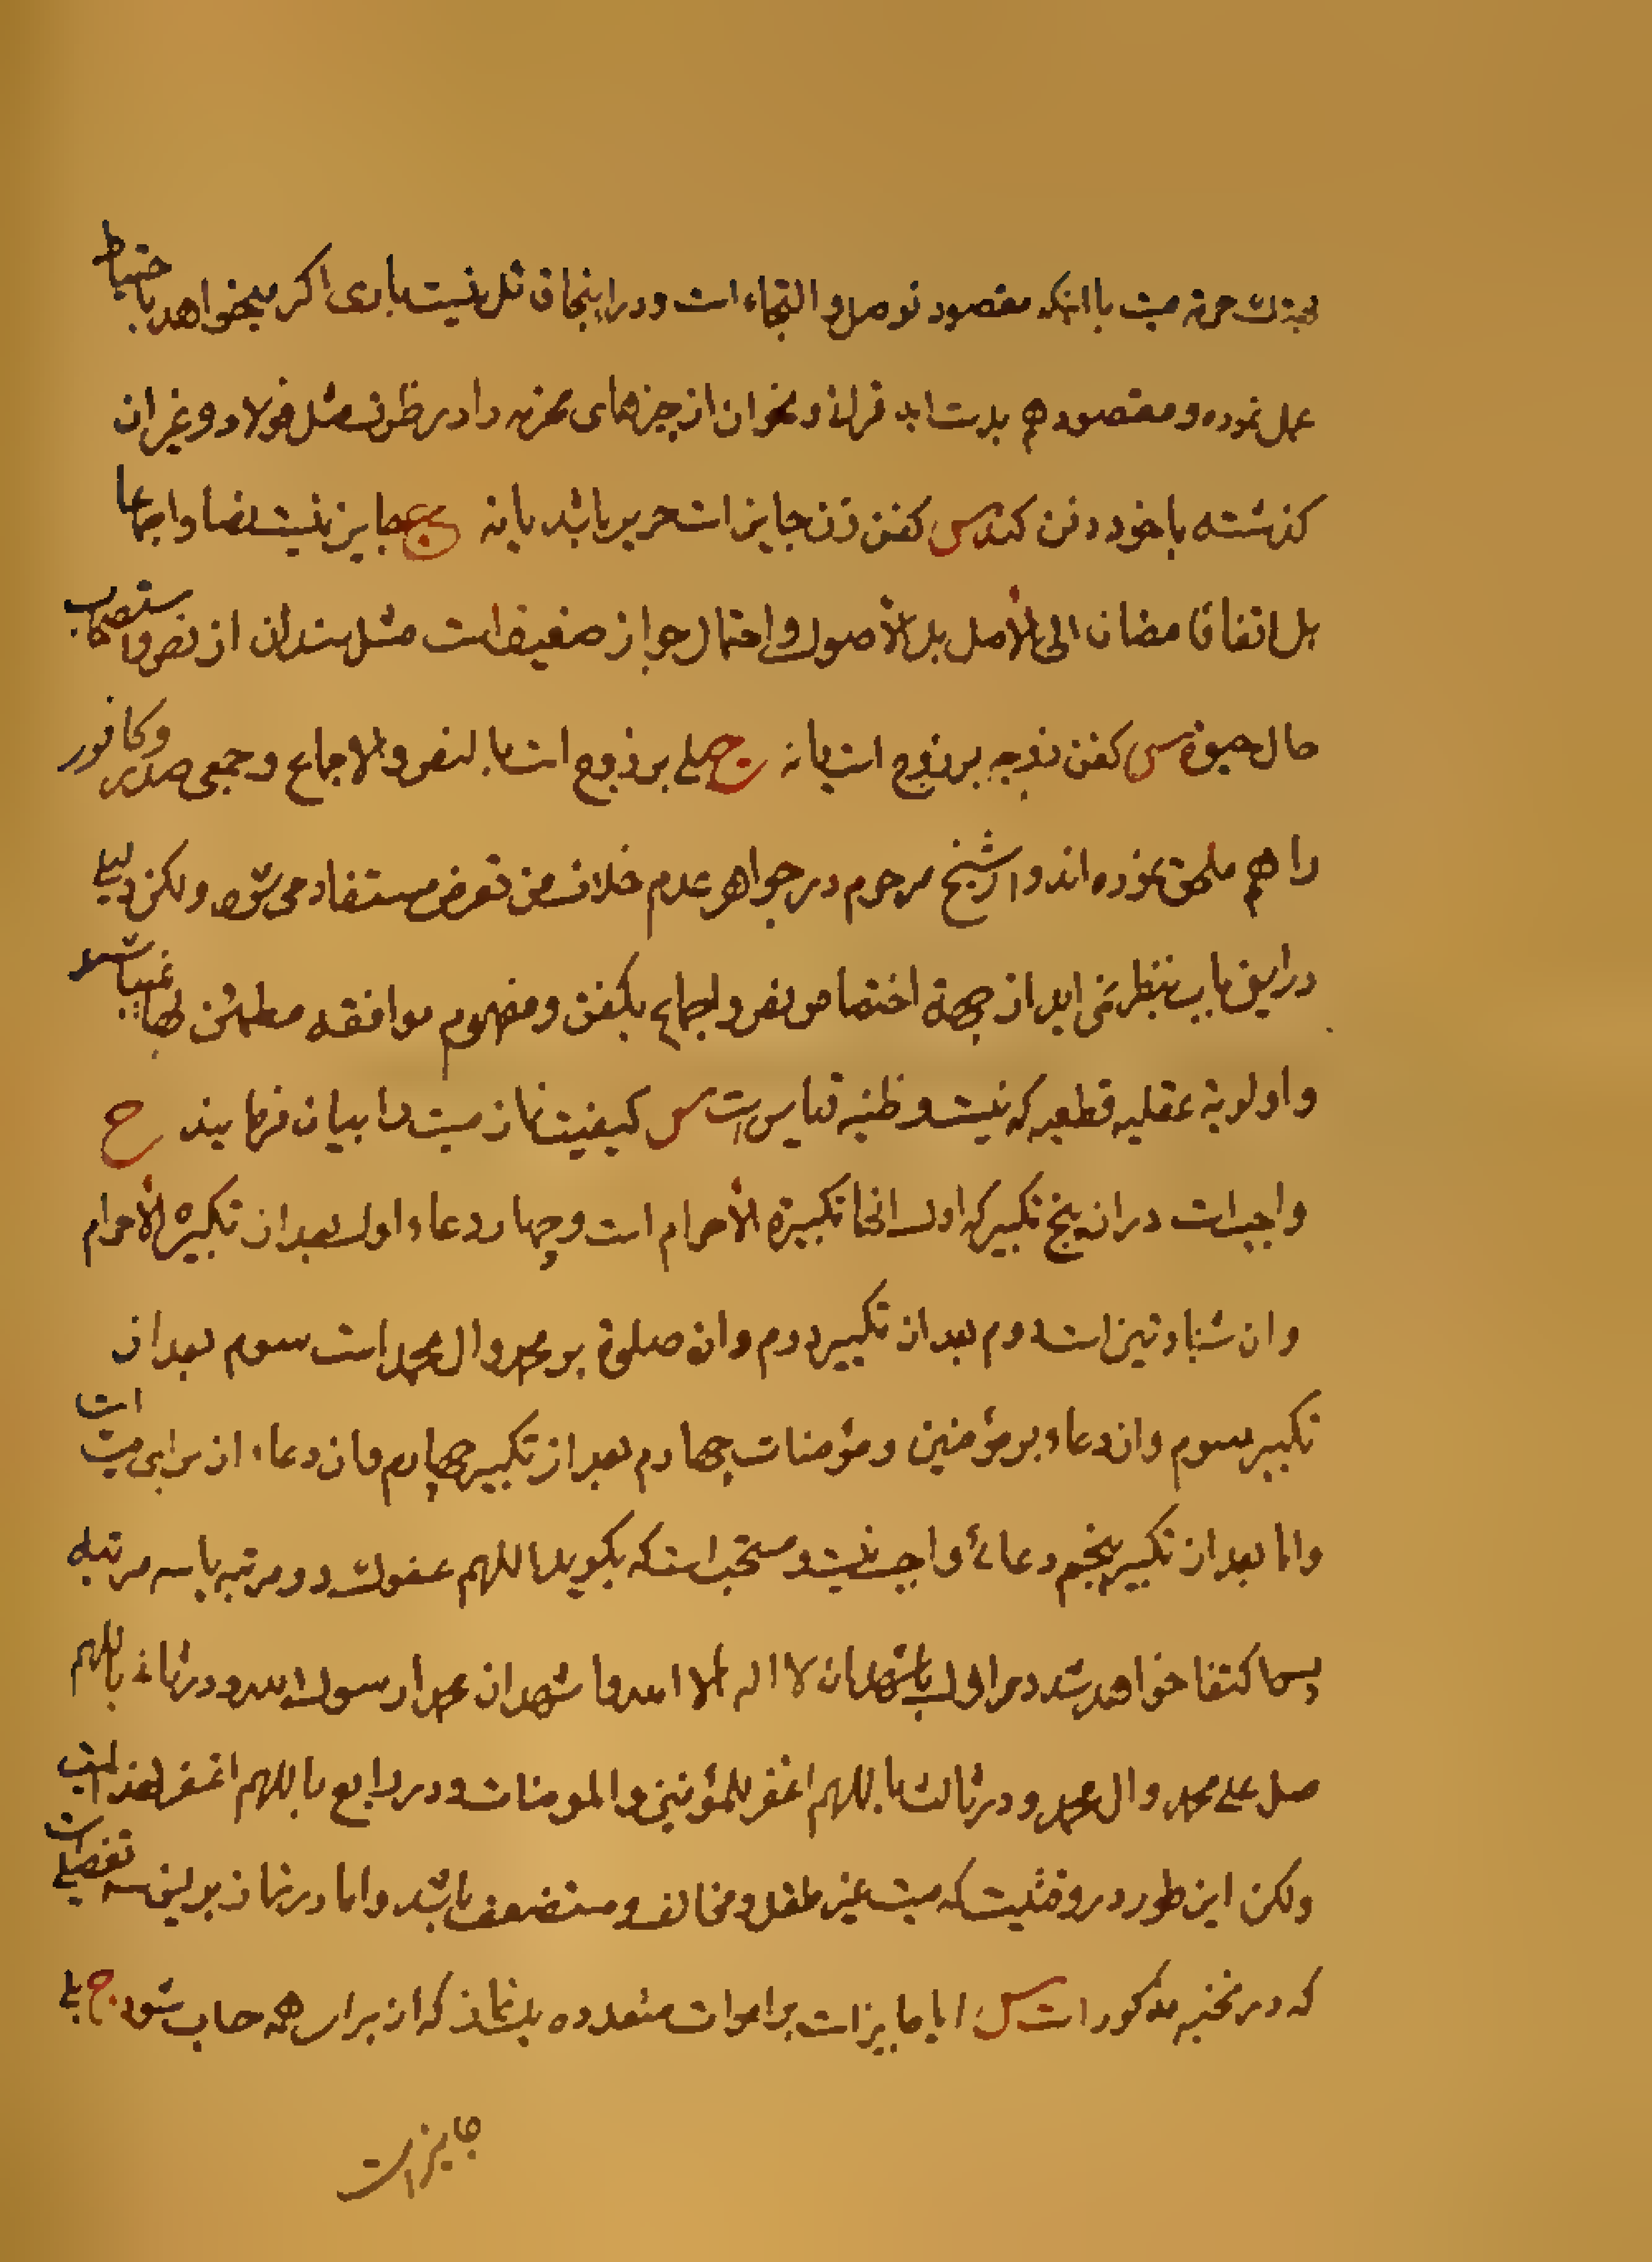 بجهة هتك حرمة میت با انکه مقصود توصل و التجاء است و در اینجا قائل نیست باری اکر میخواهد باحتیاط
عمل نموده و مقصود هم بدست اید قران و نحو ان از چیزهای محترمه را در ظرف مثل فولاد و غیر ان
کذشته با خود دفن کند س کفن زن جایز است حریر باشد یا نه ج جایز نیست نصا و اجماعا
بل اتفاقا مضافا الی الأصل بل الأصول و احتمال جواز ضعیف است مثل مستند ان از نص و استصحاب
حال حیوة س کفن زوجه بر زوج است یا نه ج بلی بر زوج است بالنص و الاجماع و جمعی سدر و کافور
را هم ملحق نموده اند و از شیخ مرحوم در جواهر عدم خلاف من تعرض مستفاد می شود ولکن دلیلی
در این باب بنظر نمی اید از جهة اختصاص نص و اجماع بکفن و مفهوم موافقه مطمئن بها
و اولویة عقلیه قطعیه که نیست و ظنیه قیاس است س کیفیت نماز میت را بیان فرمایید ج
واجبست در ان پنج تکبیر که اول انها تکبیرة الأحرام است و چهار دعاء اول بعد از تکبیرة الأحرام
و ان شهادتین است دوم بعد از تکبیر دوم و ان صلوة بر محمد و ال محمد است سوم بعد از
تکبیر سوم و ان دعاء بر مؤمنین و مؤمنات چهارم بعد از تکبیر چهارم و ان دعاء از برای میت است
و اما بعد از تکبیر پنجم دعائی واجب نیست و مستحب است که بکوید اللهم عفوک دو مرتبه یا سه مرتبه
پس اکتفا خواهد شد در اول باشهد ان لا اله الا الله و اشهد ان محمدا رسول الله و در ثانی باللهم
صل علی محمد و ال محمد و در ثالث باللهم اغفر للمؤمنین و المومنات و در رابع باللهم اغفر لهذا المیت
ولکن این طور در وقتیست که میت غیر طفل و مخالف و مستضعف باشد و اما در نماز بر این سه تفصیلی است
که در نخبه مذکور است س ایا جایز است بر اموات متعدده یک نماز که از برای همه حساب شود ج بلی
جایز است